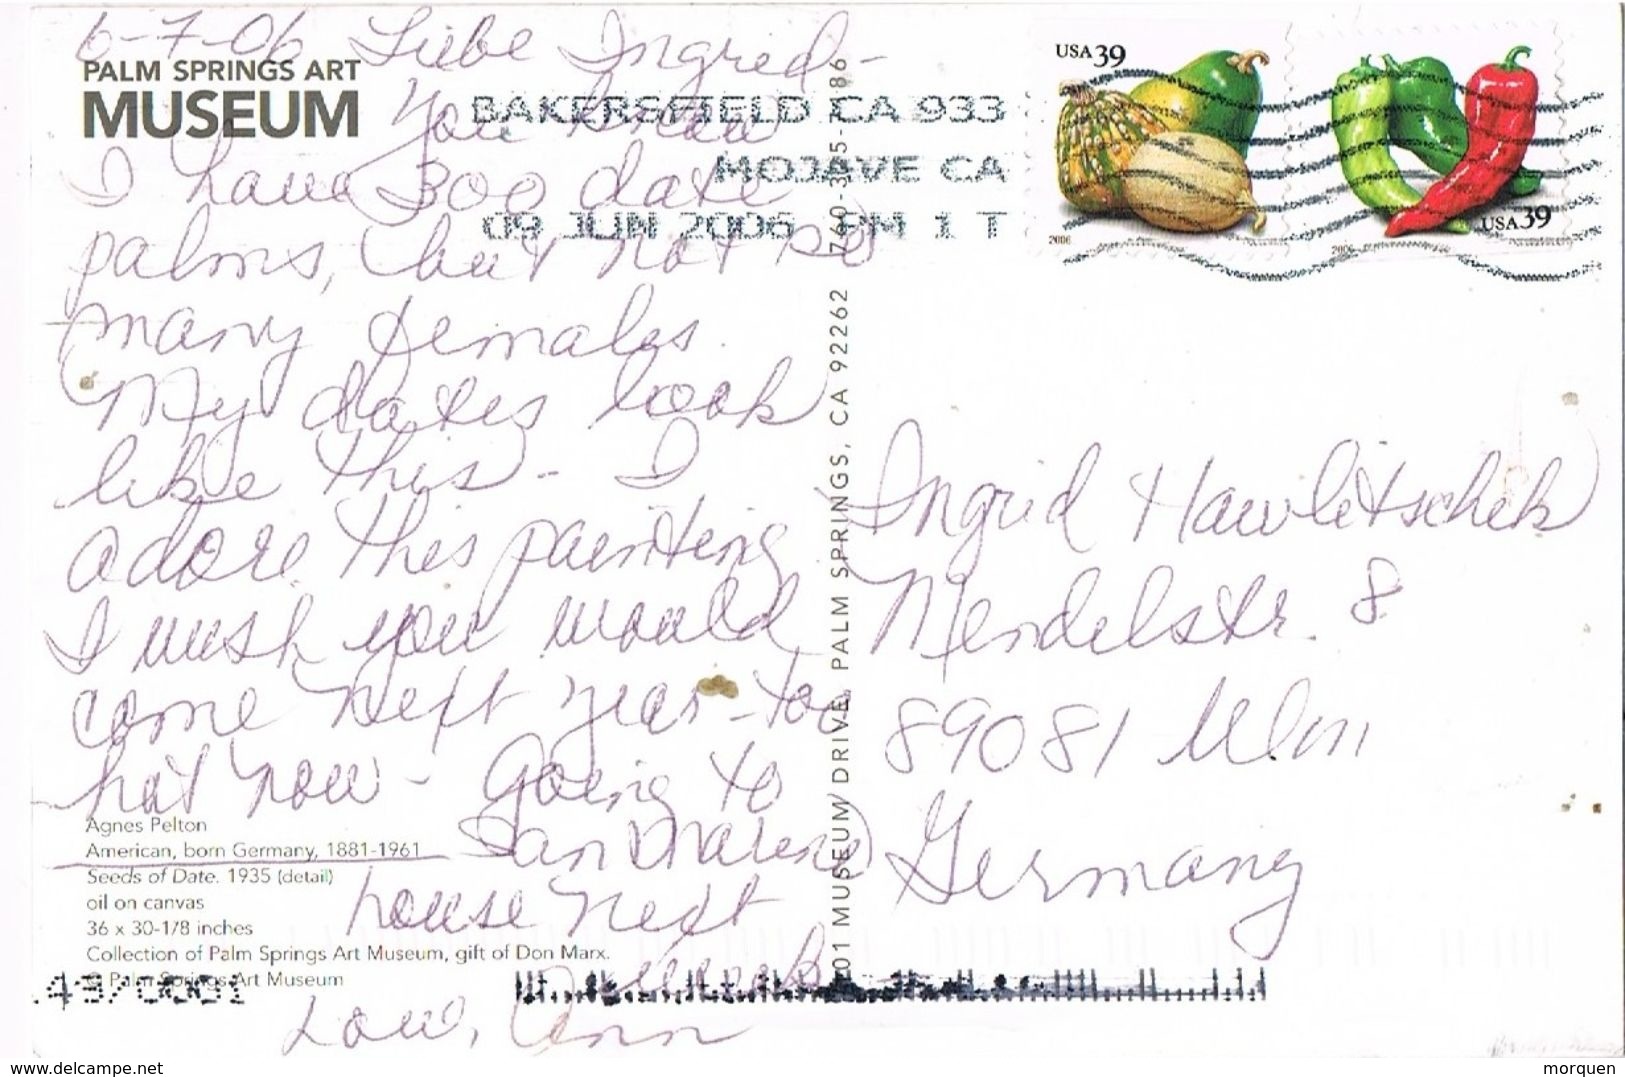 6-7-06 Liebe Ingrid -
PALM SPRINGS ART
MUSEUM
You know
I have 300 date
palms, but not so
many females.
My dates look
like this - I
adore this painting
I wish you would
come next year - too
hot now - Going to
San Marino
house next
week
Love, Ann
Agnes Pelton
American, born Germany, 1881-1961
Seeds of Date. 1935 (detail)
oil on canvas
36 x 30-1/8 inches
Collection of Palm Springs Art Museum, gift of Don Marx.
© Palm Springs Art Museum
101 MUSEUM DRIVE, PALM SPRINGS, CA 92262
BAKERSFIELD CA 933
MOJAVE CA
09 JUN 2006 PM 1 T
USA 39
2006
USA 39
2006
Ingrid Hawlitschek
Mendelstr. 8
89081 Ulm
Germany
www.delcampe.net
morquen